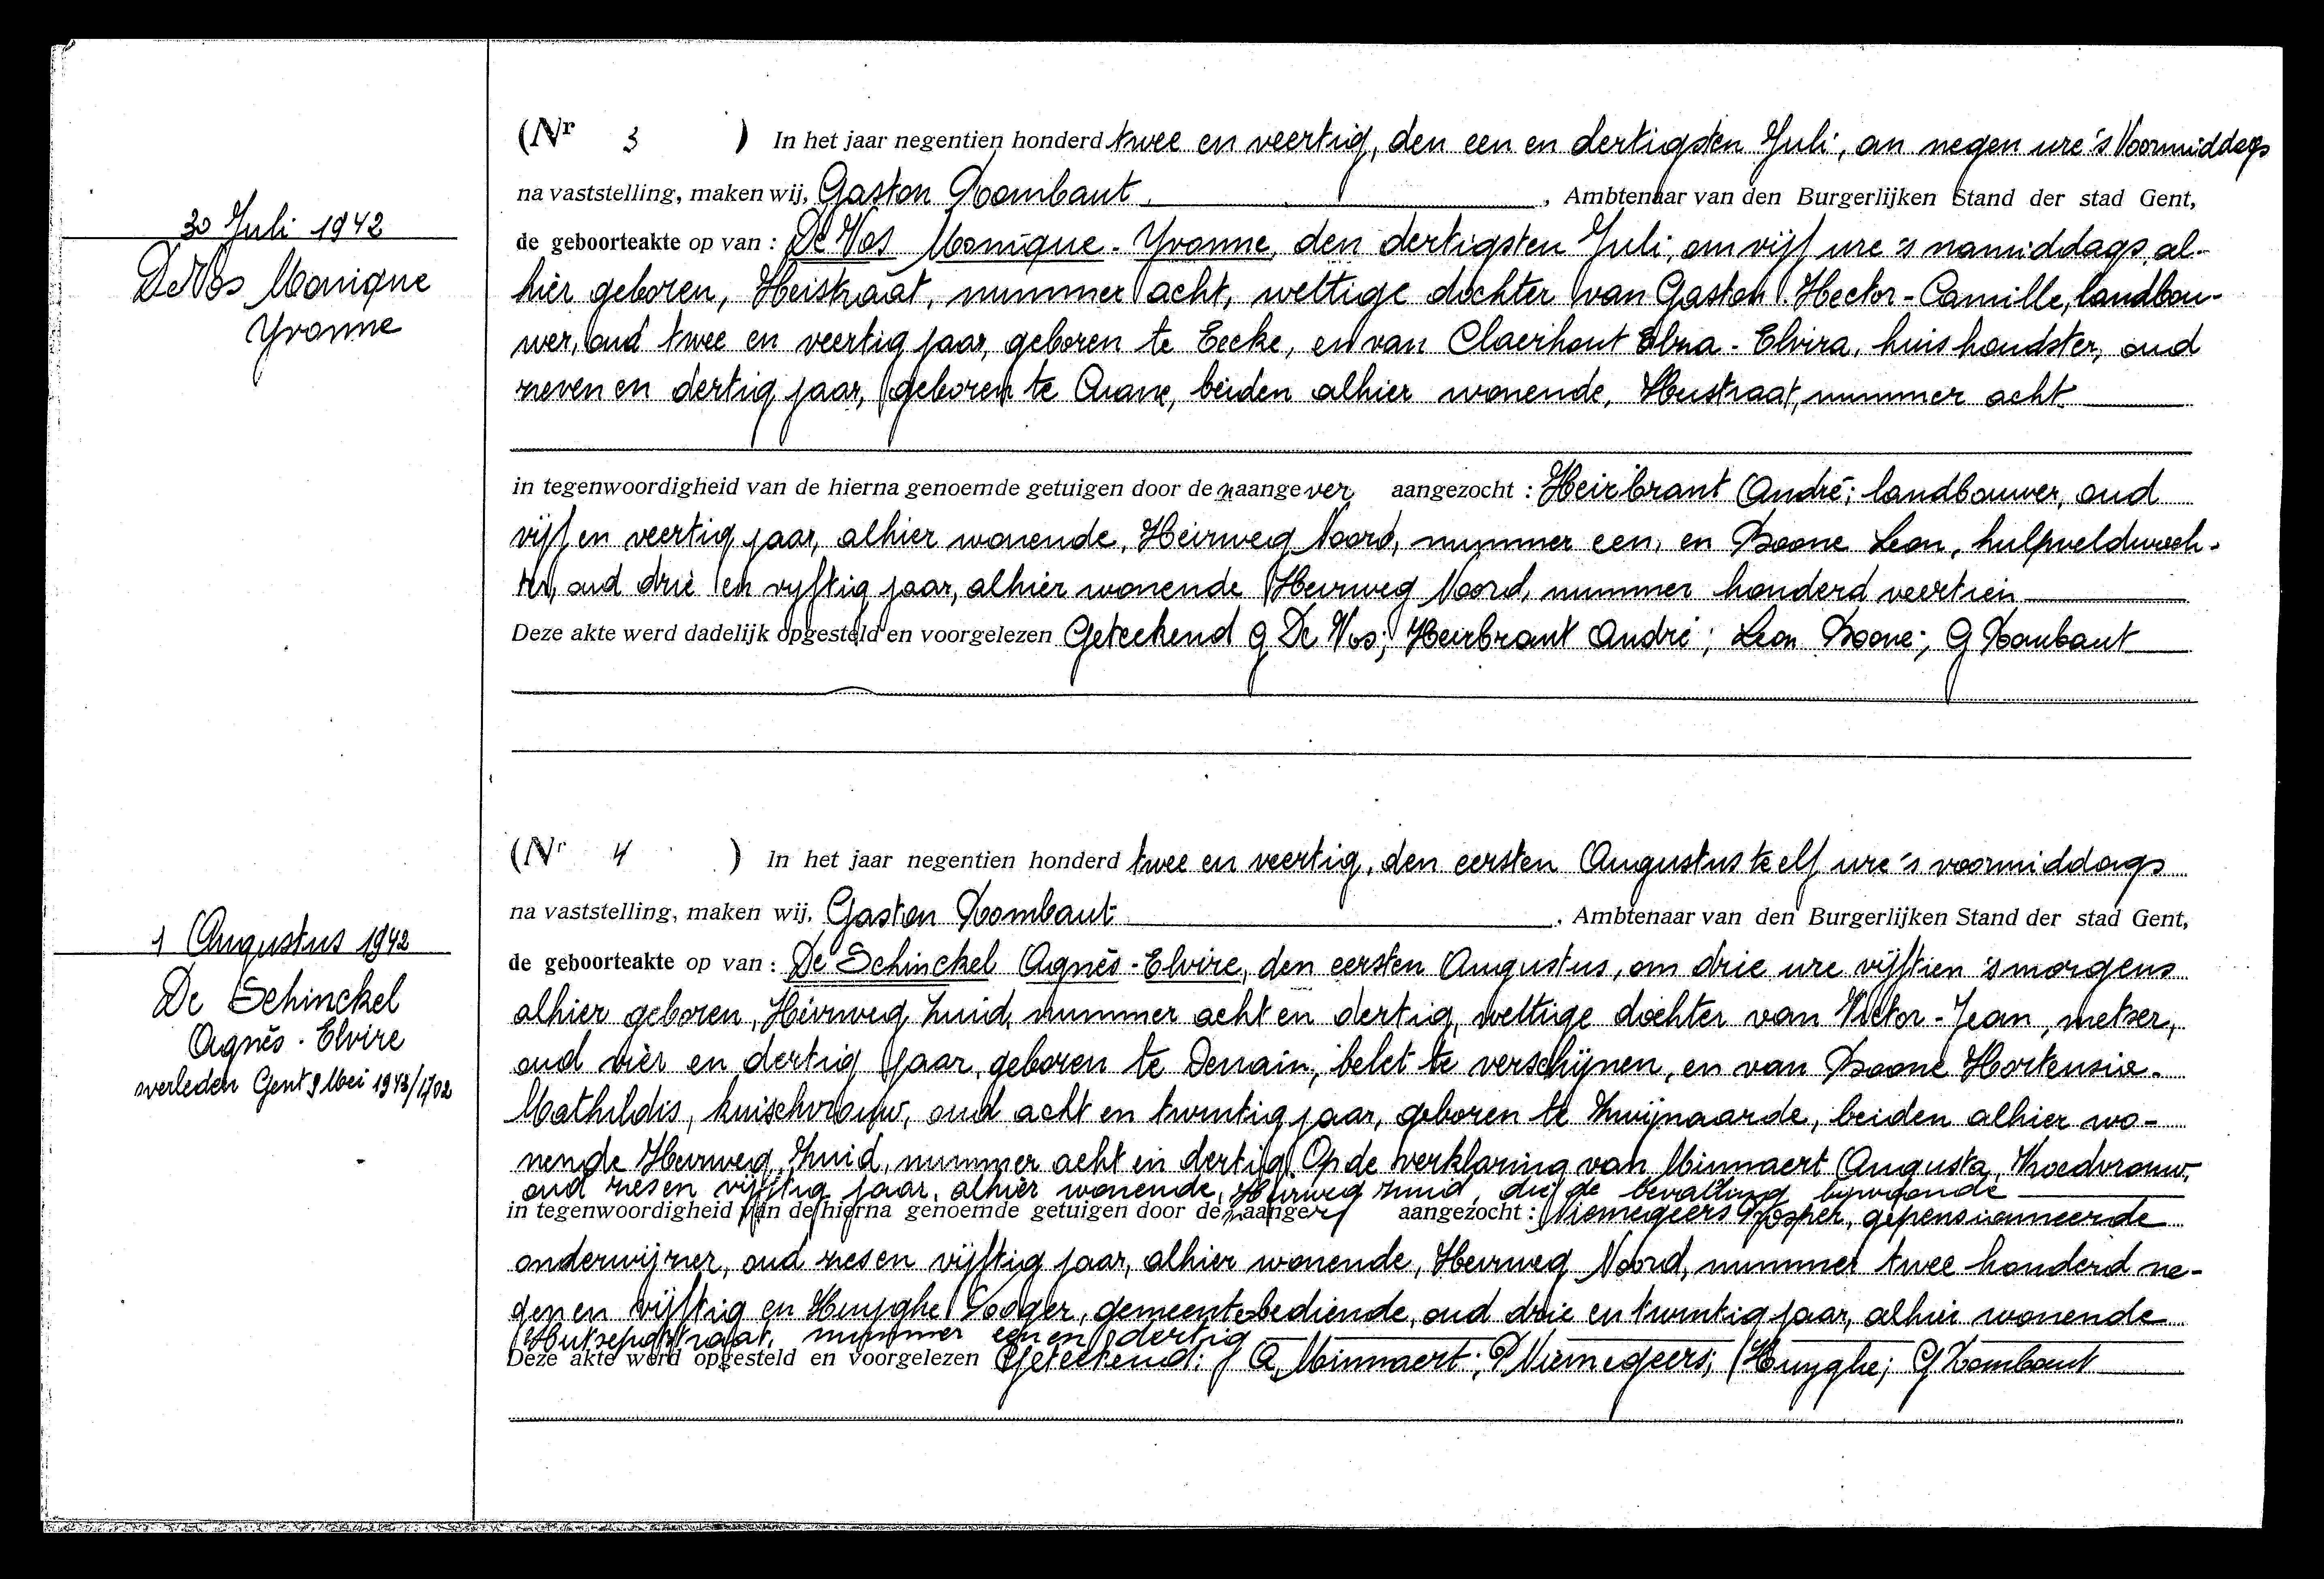 30 Juli 1942
De Vos Monique
Yvonne
(Nr 3 ) In het jaar negentien honderd twee en veertig, den een en dertigsten Juli, om negen ure 's Voormiddags
na vaststelling, maken wij, Gaston Rombaut , Ambtenaar van den Burgerlijken Stand der stad Gent,
de geboorteakte op van : De Vos Monique - Yvonne, den dertigsten Juli, om vijf ure 's namiddags, al-
hier geboren, Heistraat, nummer acht, wettige dochter van Gaston Hector - Camille, landbou-
wer, oud twee en veertig jaar, geboren te Eecke, en van Claerhout - Elvira, huishoudster, oud
zeven en dertig jaar, geboren te beiden alhier wonende, Heistraat, nummer acht
in tegenwoordigheid van de hierna genoemde getuigen door de n aangever aangezocht : Heirbrant André; landbouwer, oud
vijf en veertig jaar, alhier wonende, Heirweg Noord, nummer een, en Boone Leon, hulpveldwach-
ter, oud drie en vyftig jaar, alhier wonende Heirweg Noord, nummer honderd veertien
Deze akte werd dadelijk opgesteld en voorgelezen Geteekend G De Vos; Heirbrant André; Leon Boone; G Rombaut
1 Augustus 1942
De Schinckel
Agnès - Elvire
overleden Gent 9 Mei 1943/1702
(Nr 4 ) In het jaar negentien honderd twee en veertig, den eersten Augustus te elf ure 's voormiddags
na vaststelling, maken wij, Gaston Rombaut , Ambtenaar van den Burgerlijken Stand der stad Gent,
de geboorteakte op van : De Schinckel Agnès - Elvire, den eersten Augustus, om drie ure vijftien 's morgens
alhier geboren, Heirweg Zuid, nummer acht en dertig, wettige dochter van Victor - Jean, metser,
oud vier en dertig jaar, geboren te Denain, belet te verschijnen, en van Boone Hortensia -
Mathildis, kuischvrouw, oud acht en twintig jaar, geboren te Zwijnaarde, beiden alhier wo-
nende Heirweg Zuid, nummer acht en dertig. Op de verklaring van Minnaert Augusta, Vroedvrouw,
oud zes en vijftig jaar, alhier wonende, Heirweg zuid, die de bevalling bijwoonde
in tegenwoordigheid van de hierna genoemde getuigen door de n aangef aangezocht : Niemegeers Prosper, gepensionneerde
onderwijzer, oud zes en vijftig jaar, alhier wonende, Heirweg Noord, nummer twee honderd ne-
gen en vijftig en Huyghe gemeentebediende, oud drie en twintig jaar, alhier wonende
Hutsepotstraat, nummer een en dertig
Deze akte werd opgesteld en voorgelezen Geteekend: A. Minnaert; P Niemegeers; Huyghe; G Rombaut